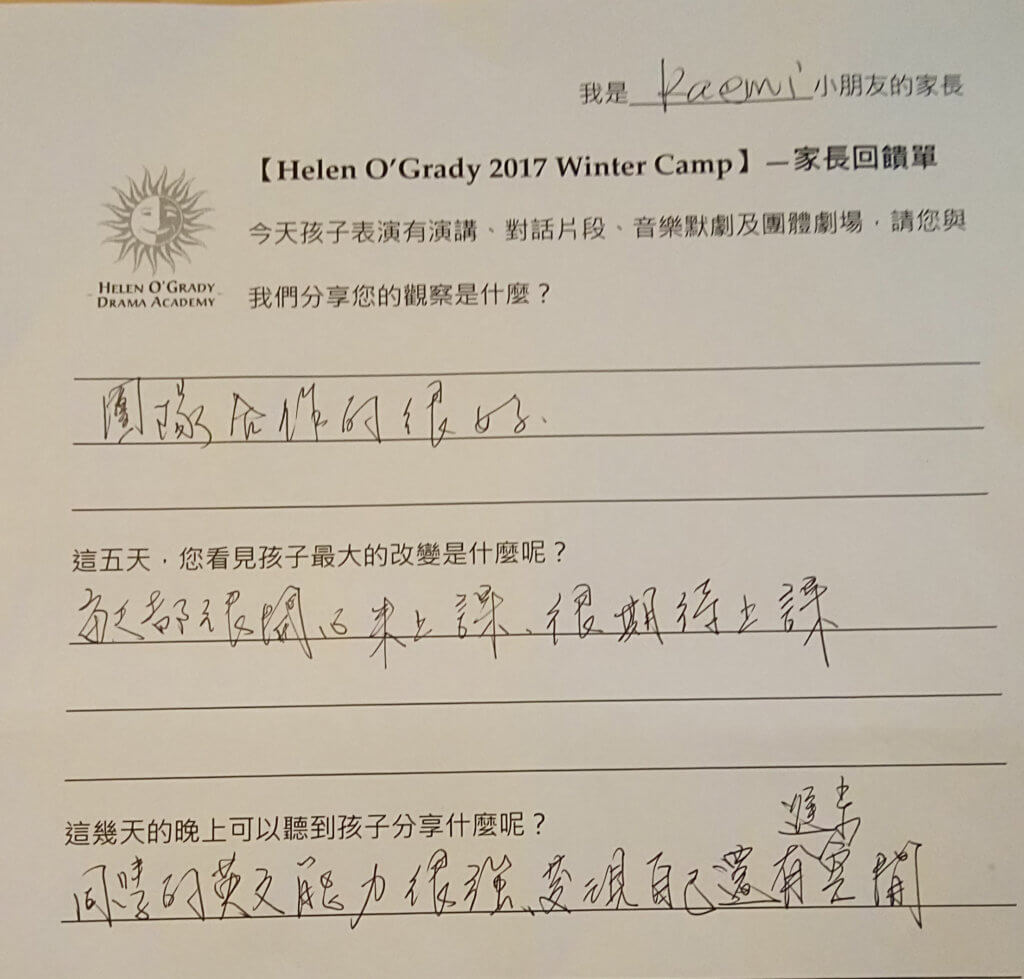 我是 Raemi 小朋友的家長
【Helen O'Grady 2017 Winter Camp】—家長回饋單
HELEN O'GRADY
DRAMA ACADEMY
今天孩子表演有演講、對話片段、音樂默劇及團體劇場，請您與
我們分享您的觀察是什麼？
團隊合作的很好.
這五天，您看見孩子最大的改變是什麼呢？
每天都很開心來上課、很期待上課
這幾天的晚上可以聽到孩子分享什麼呢？
進步
同學的英文能力很強、發現自己還有空間